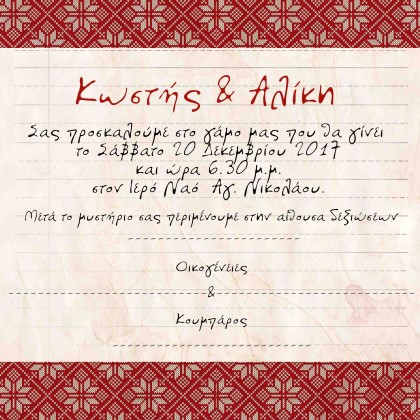 Κωστής & Αλίκη
Σας προσκαλούμε στο γάμο μας που θα γίνει
το Σάββατο 20 Δεκεμβρίου 2017
και ώρα 6.30 μ.μ.
στον Ιερό Ναό Αγ. Νικολάου.
Μετά το μυστήριο σας περιμένουμε στην αίθουσα δεξιώσεων
Οικογένειες
&
Κουμπάρος